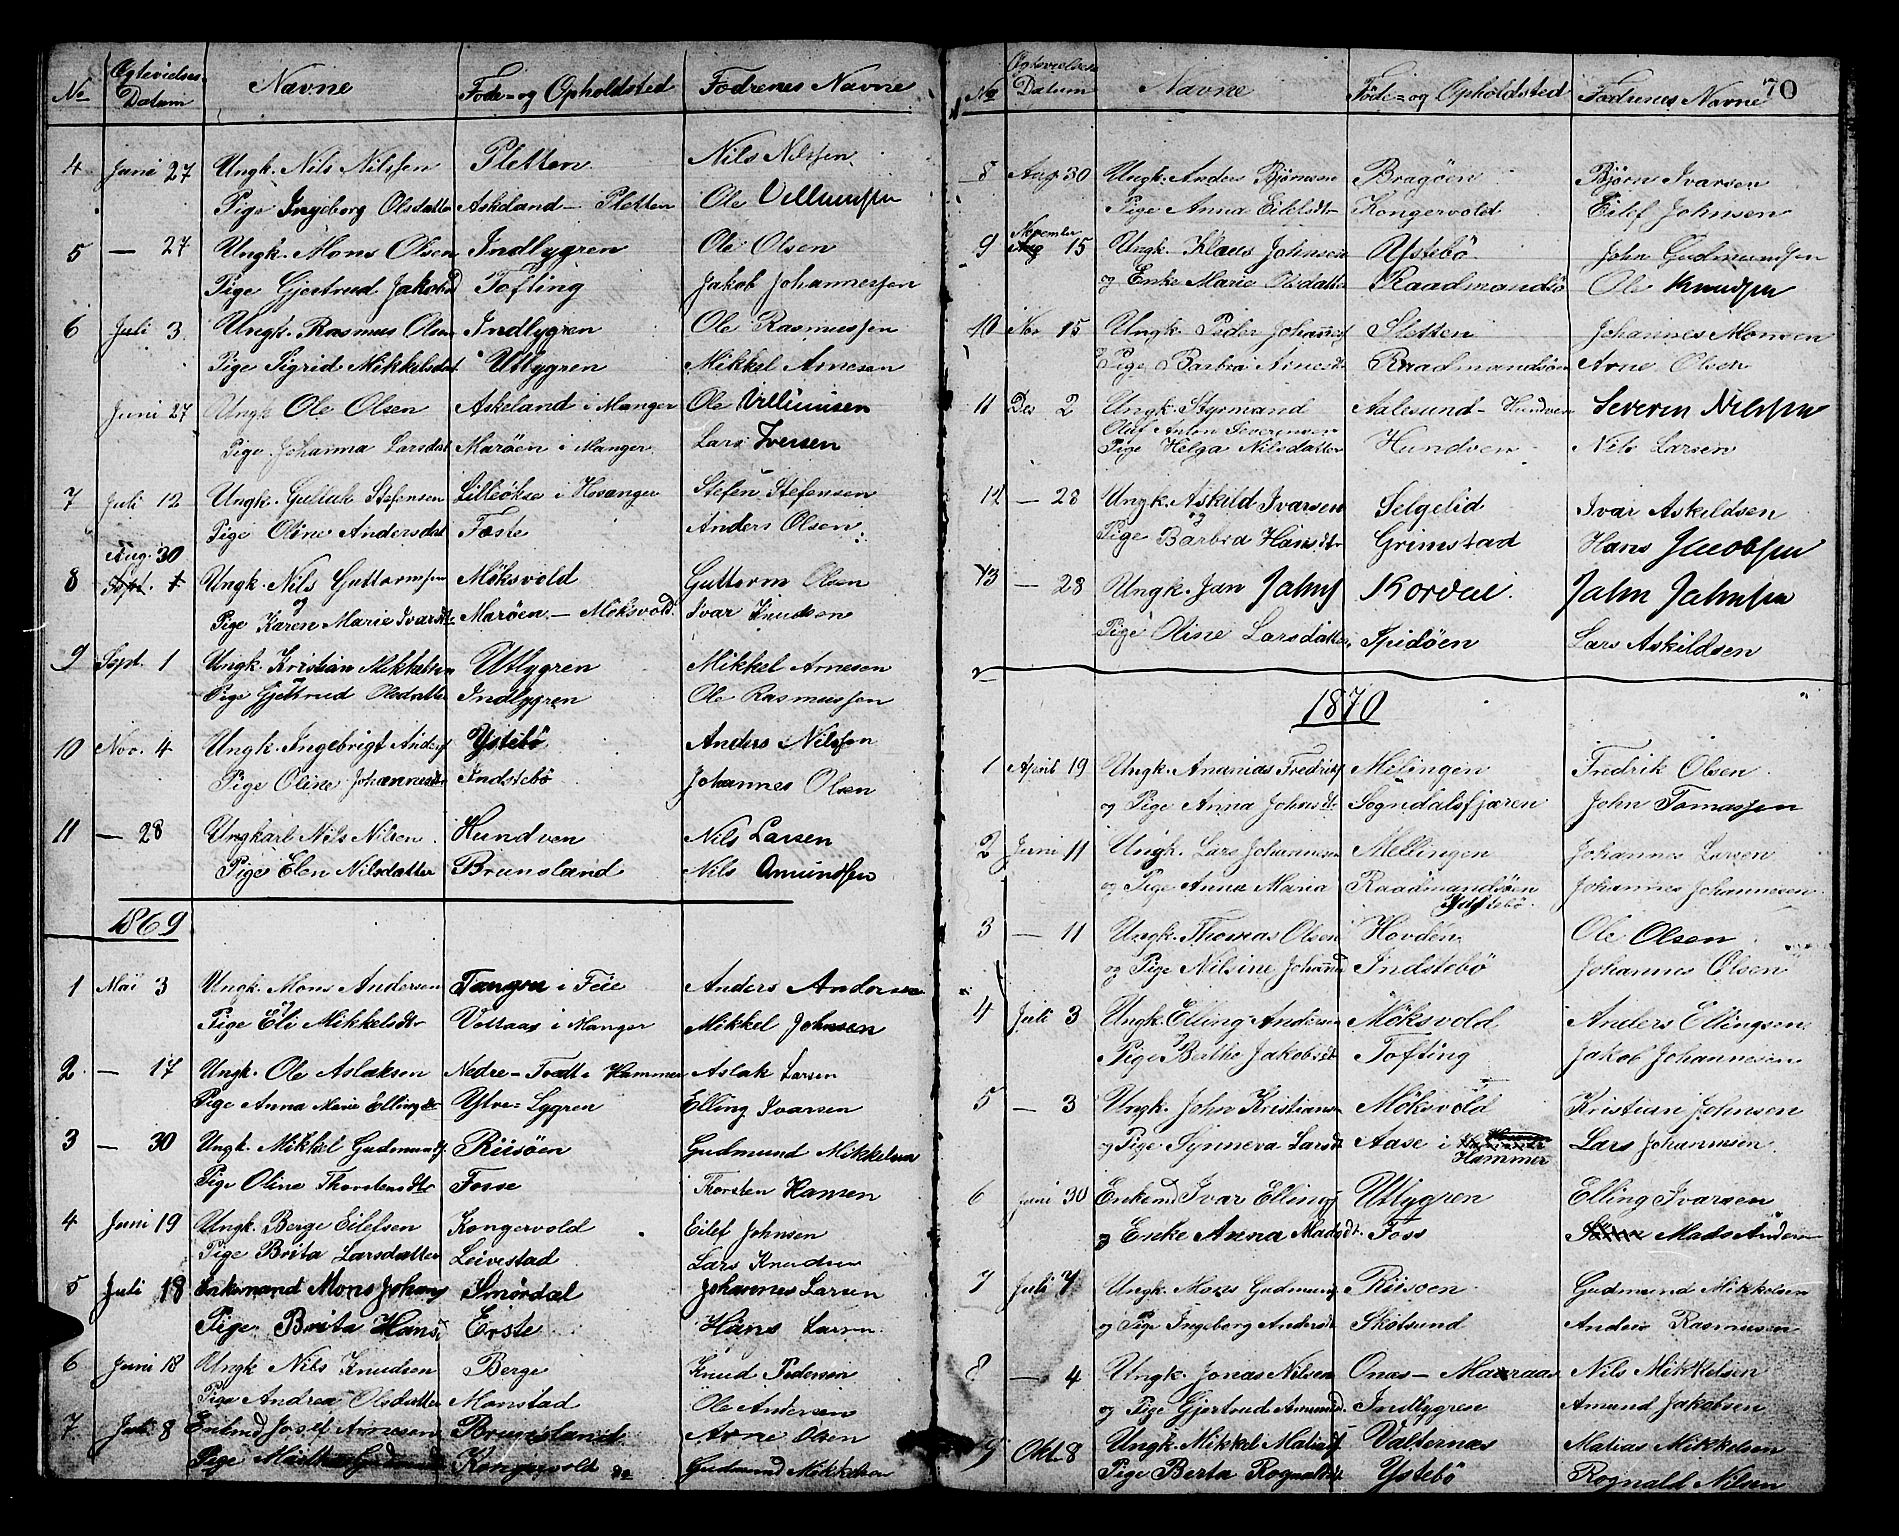 No Egtevielses Datum Navne Føde- og Opholdsted Fædrenes Navne
4 Juni 27 Ungk. Nils Nilssen Pletten Nils Nilssen
Pige Ingeborg Olsdatter Askeland - Pletten Ole Villumsen
5 — 27 Ungk. Mons Olsen Indlygren Ole Olsen
Pige Gjertrud Jakobsd Tofting Jakob Johannessen
6 Juli 3 Ungk. Rasmus Olsen Indlygren Ole Rasmussen
Pige Sigrid Mikkelsdat Utlygren Mikkel Arnesen
Juni 27 Ungk Ole Olsen Askeland i Manger Ole Villumsen
Pige Johanna Larsdat Marøen i Manger Lars Iversen
7 Juli 12 Ungk. Gullak Stefensen Lilleökse i Hosanger Stefen Stefensen
Pige Oline Andersdat Fæste Anders Olsen
Aug. 30
8 Sept. 1 Ungk. Nils Guttormsen Möksvold Guttorm Olsen
og
Pige Karen Marie Ivarsdtr Marøen - Möksvold Ivar Knudsen
9 Sept. 1 Ungk. Kristian Mikkelsen Utlygren Mikkel Arnesen
og
Pige Gjertrud Olsdatter Indlygren Ole Rasmussen
10 Nov. 4 Ungk. Ingebrigt Anders Ystebö Anders Nilssen
Pige Oline Johannesdtr Indstebö Johannes Olsen
11 — 28 Ungkarl Nils Nilsen Hundven Nils Larsen
Pige Elen Nilsdatter Brunsland Nils Amundsen
1869
1 Mai 3 Ungk. Mons Andersen Tangen i Feie Anders Andersen
og
Pige Eli Mikkelsdtr Vollaas i Manger Mikkel Johnsen
2 — 17 Ungk. Ole Aslaksen Nedre - Tvedt i Hammer Aslak Larsen
Pige Anna Marie Ellingsdtr Ytre - Lygren Elling Ivarsen
3 — 30 Ungk. Mikkel Gudmunds Riisöen Gudmund Mikkelsen
Pige Oline Thorstensdtr Fosse Thorsten Hansen
4 Juni 19 Ungk. Berge Eilefsen Kongervold Eilef Johnsen
Pige Brita Larsdatter Leivestad Lars Knudsen
5 Juli 18 Enkemand Mons Johans Smördal Johannes Larsen
Pige Brita Hansd Erste Hans Larsen
6 Juni 18 Ungk Nils Knudsen Berge Knud Pedersen
Pige Andrea Olsdatter Monstad Ole Andersen
7 Juli 8 Enkmd Josef Arnesen Brunsland Arne Olsen
Pige Kongervold Gudmund Mikkelsen
70
No Egtevielses Datum Navne Föde- og Opholdsted Fædrenes Navne
8 Aug 30 Ungk. Anders Bjørnsen Bragöen Bjørn Ivarsen
Pige Anna Eilefsdtr Kongervold Eilef Johnsen
November
9 Aug 15 Ungk. Klaus Johnsen Ystebö John Gudmundsen
og Enke Marie Olsdatter Raadmandsö Ole Knudsen
10 Nov 15 Ungk Peder Johannes Sletten Johannes Monsen
Pige Barbra Arnesdtr Raadmandsöen Arne Olsen
11 Des 2 Ungk. Styrmand Aalesund - Hundven Severin Nilssen
Olaf Anton Severinsen
Pige Helga Nilsdatter Hundven Nils Larsen
12 — 28 Ungk. Askild Ivarsen Selgelid Ivar Askildsen
og
Pige Barbra Hansdtr Grimstad Hans Jacobsen
13 — 28 Ungk. Jan Jahns Kordal Jahn Jahnsen
Pige Oline Larsdatter Spidöen Lars Askildsen
1870
1 April 19 Ungk. Ananias Fredriks Mélingen Fredrik Olsen
og Pige Anna Johnsdtr Sogndalsfjæren John Tomassen
2 Juni 11 Ungk. Lars Johannesen Mellingen Johannes Larsen
og Pige Anna Maria Raadmandsöen Johannes Johannesen
Indstebö
3 — 11 Ungk. Thomas Olsen Hovden Ole Olsen
og Pige Nilsine Johannesd Indstebö Johannes Olsen
4 Juli 3 Ungk. Elling Andersen Möksvold Anders Ellingsen
Pige Berthe Jakobsdt Tofting Jakob Johannesen
5 — 3 Ungk. John Kristians Möksvold Kristian Johnsen
og Pige Synneva Larsdt Aase i Hammer Lars Johannesen
6 Juni 30 Enkemd Ivar Ellings Utlygren Elling Ivarsen
og Enke Anna Madsdt. Foss Mads Andersen
7 Juli 7 Ungk. Mons Gudmunds Riisöen Gudmund Mikkelsen
og Pige Ingeborg Andersdt Skotsund Anders Rasmussen
8 — 4 Ungk. Jonas Nilsen Onas - Maraas Nils Mikkelsen
og Pige Gjertrud Amundsd. Indlygren Amund Jakobsen
9 Okt. 8 Ungk. Mikkel Matias Valternæs Matias Mikkelsen
Pige Berta Rognaldsdt Ystebö Rognald Nilsen